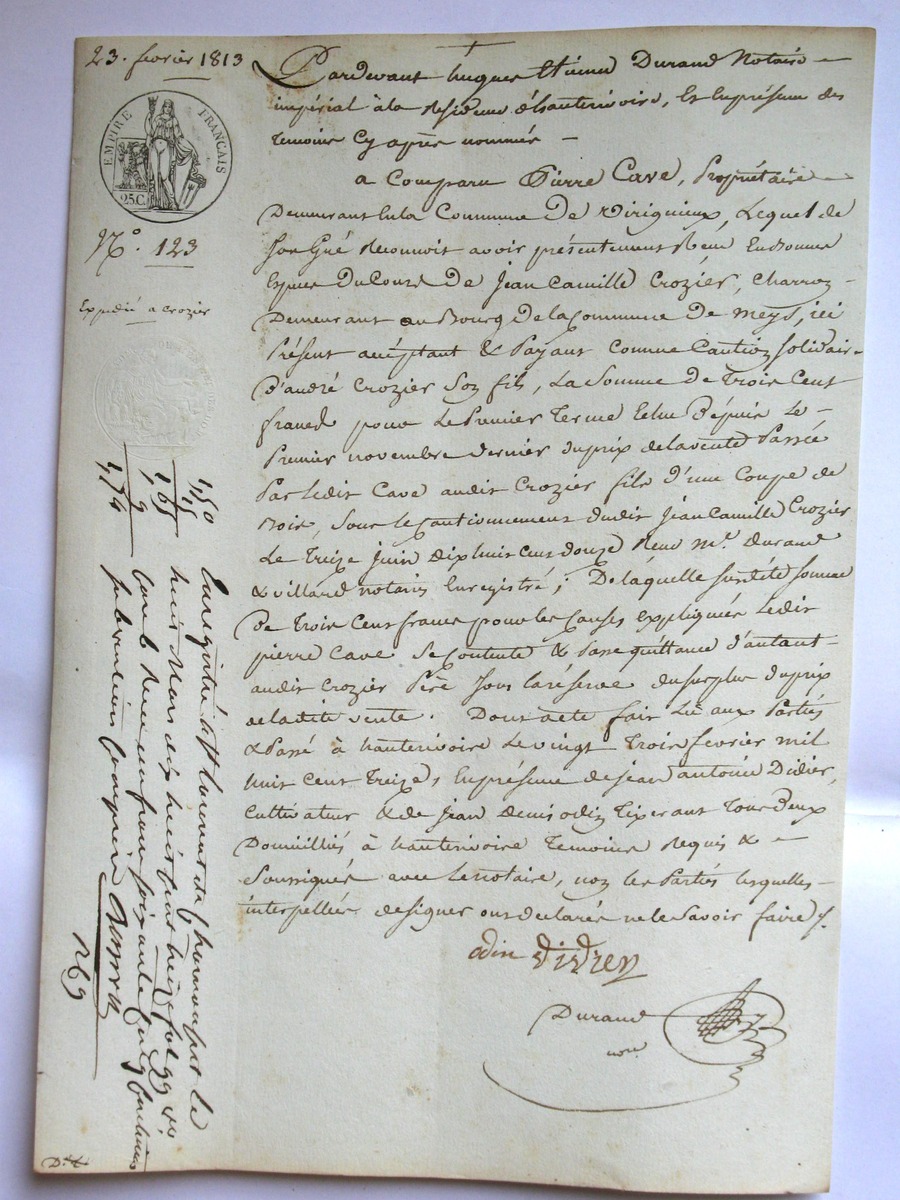 23. fevrier 1813
EMPIRE FRANÇAIS
25.C.
N.º 123
Expedié a crozier
Pardevant hugues Etienne Durand Notaire
impérial à la Residence d'hauterivoire, Et En présence des
temoins Cy après nommés
a Comparu Pierre Cave, Propriétaire
Demeurant En la Commune De Virignieux, Lequel de
son Gré Reconnoit avoir présentement Reçu En Bonnes
Espèces Du Cours De Jean Camille Crozier, Charron
Demeurant au Bourg De la Commune De meys, ici
Présent acceptant & Payant Comme Caution solidaire
D'andré Crozier son fils, La Somme De Trois Cent
francs pour Le Premier Terme Echu Depuis Le
Premier novembre Dernier du prix de la vente Passée
Par Ledit Cave audit Crozier fils D'une Coupe de
Bois, sous le Cautionnement dudit Jean Camille Crozier
Le Treize Juin Dix huit Cent Douze Reçu M.e Durand
& villard notaires Enregistré; De laquelle susdite somme
De trois Cent francs pour les Causes Expliquées Ledit
pierre Cave Se Contente & Passe quittance d'autant
audit Crozier Père sous la réserve du surplus du prix
de la dite vente. Dont acte fait Lu aux Parties
& Passé à hauterivoire Le vingt Trois fevrier mil
huit Cent Treize, En présence de jean antoine Didier,
Cultivateur & de Jean Denis odin Tixerant Tous Deux
Domiciliés à hauterivoire Temoins Requis &
Soussignés avec Le notaire, non les Parties lesquelles
interpellées de signer ont déclarés ne le Savoir faire
odin didier
Durand
not.re
1,50
15
1,65
9
1,74
Enregistré à St Laurent de Chamousset le
huit mars dix huit cent treize fol 99
Reçu un franc soixante cinq centimes
subvention comprise
269